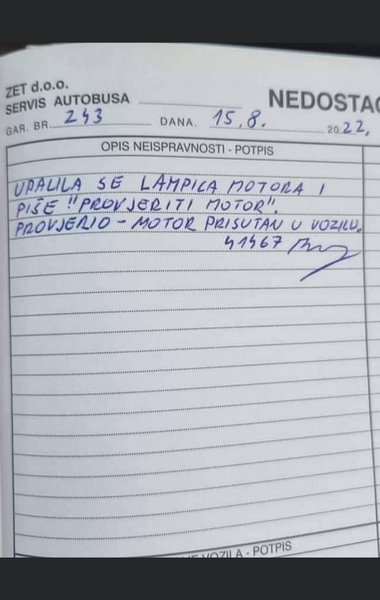 ZET d.o.o.
SERVIS AUTOBUSA
NEDOSTAC
GAR. BR. 243 DANA. 15.8. 2022,
OPIS NEISPRAVNOSTI - POTPIS
UPALILA SE LAMPICA MOTORA I
PIŠE "PROVJERITI MOTOR".
PROVJERIO - MOTOR PRISUTAN U VOZILU.
41467
VOZILA - POTPIS